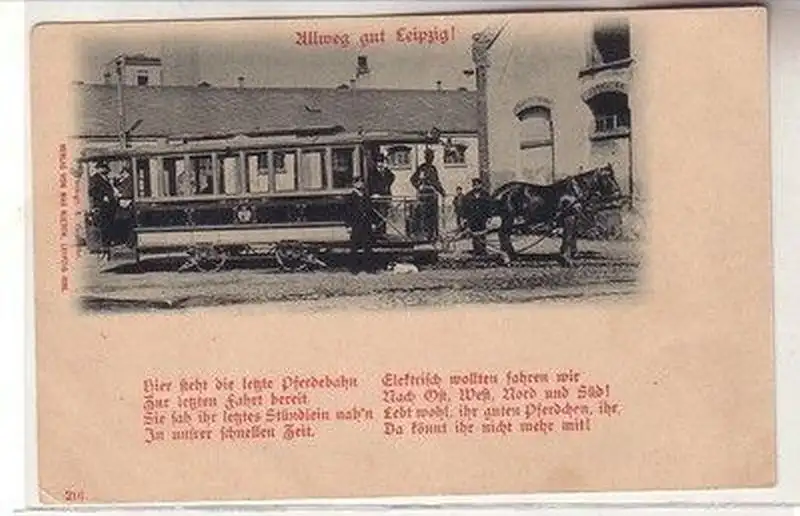 Allweg gut Leipzig!
Hier steht die letzte Pferdebahn
Zur letzten Fahrt bereit
Sie sah ihr letztes Stündlein nah'n
In unsrer schnellen Zeit.
Elektrisch wollten fahren wir
Nach Ost, West, Nord und Süd!
Lebt wohl, ihr guten Pferdchen, ihr,
Da könnt ihr nicht mehr mit!
216